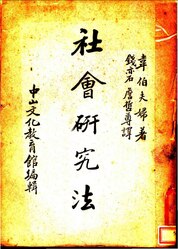 韋伯夫婦著
錢亦石 詹哲尊譯
社會研究法
中山文化教育館編輯